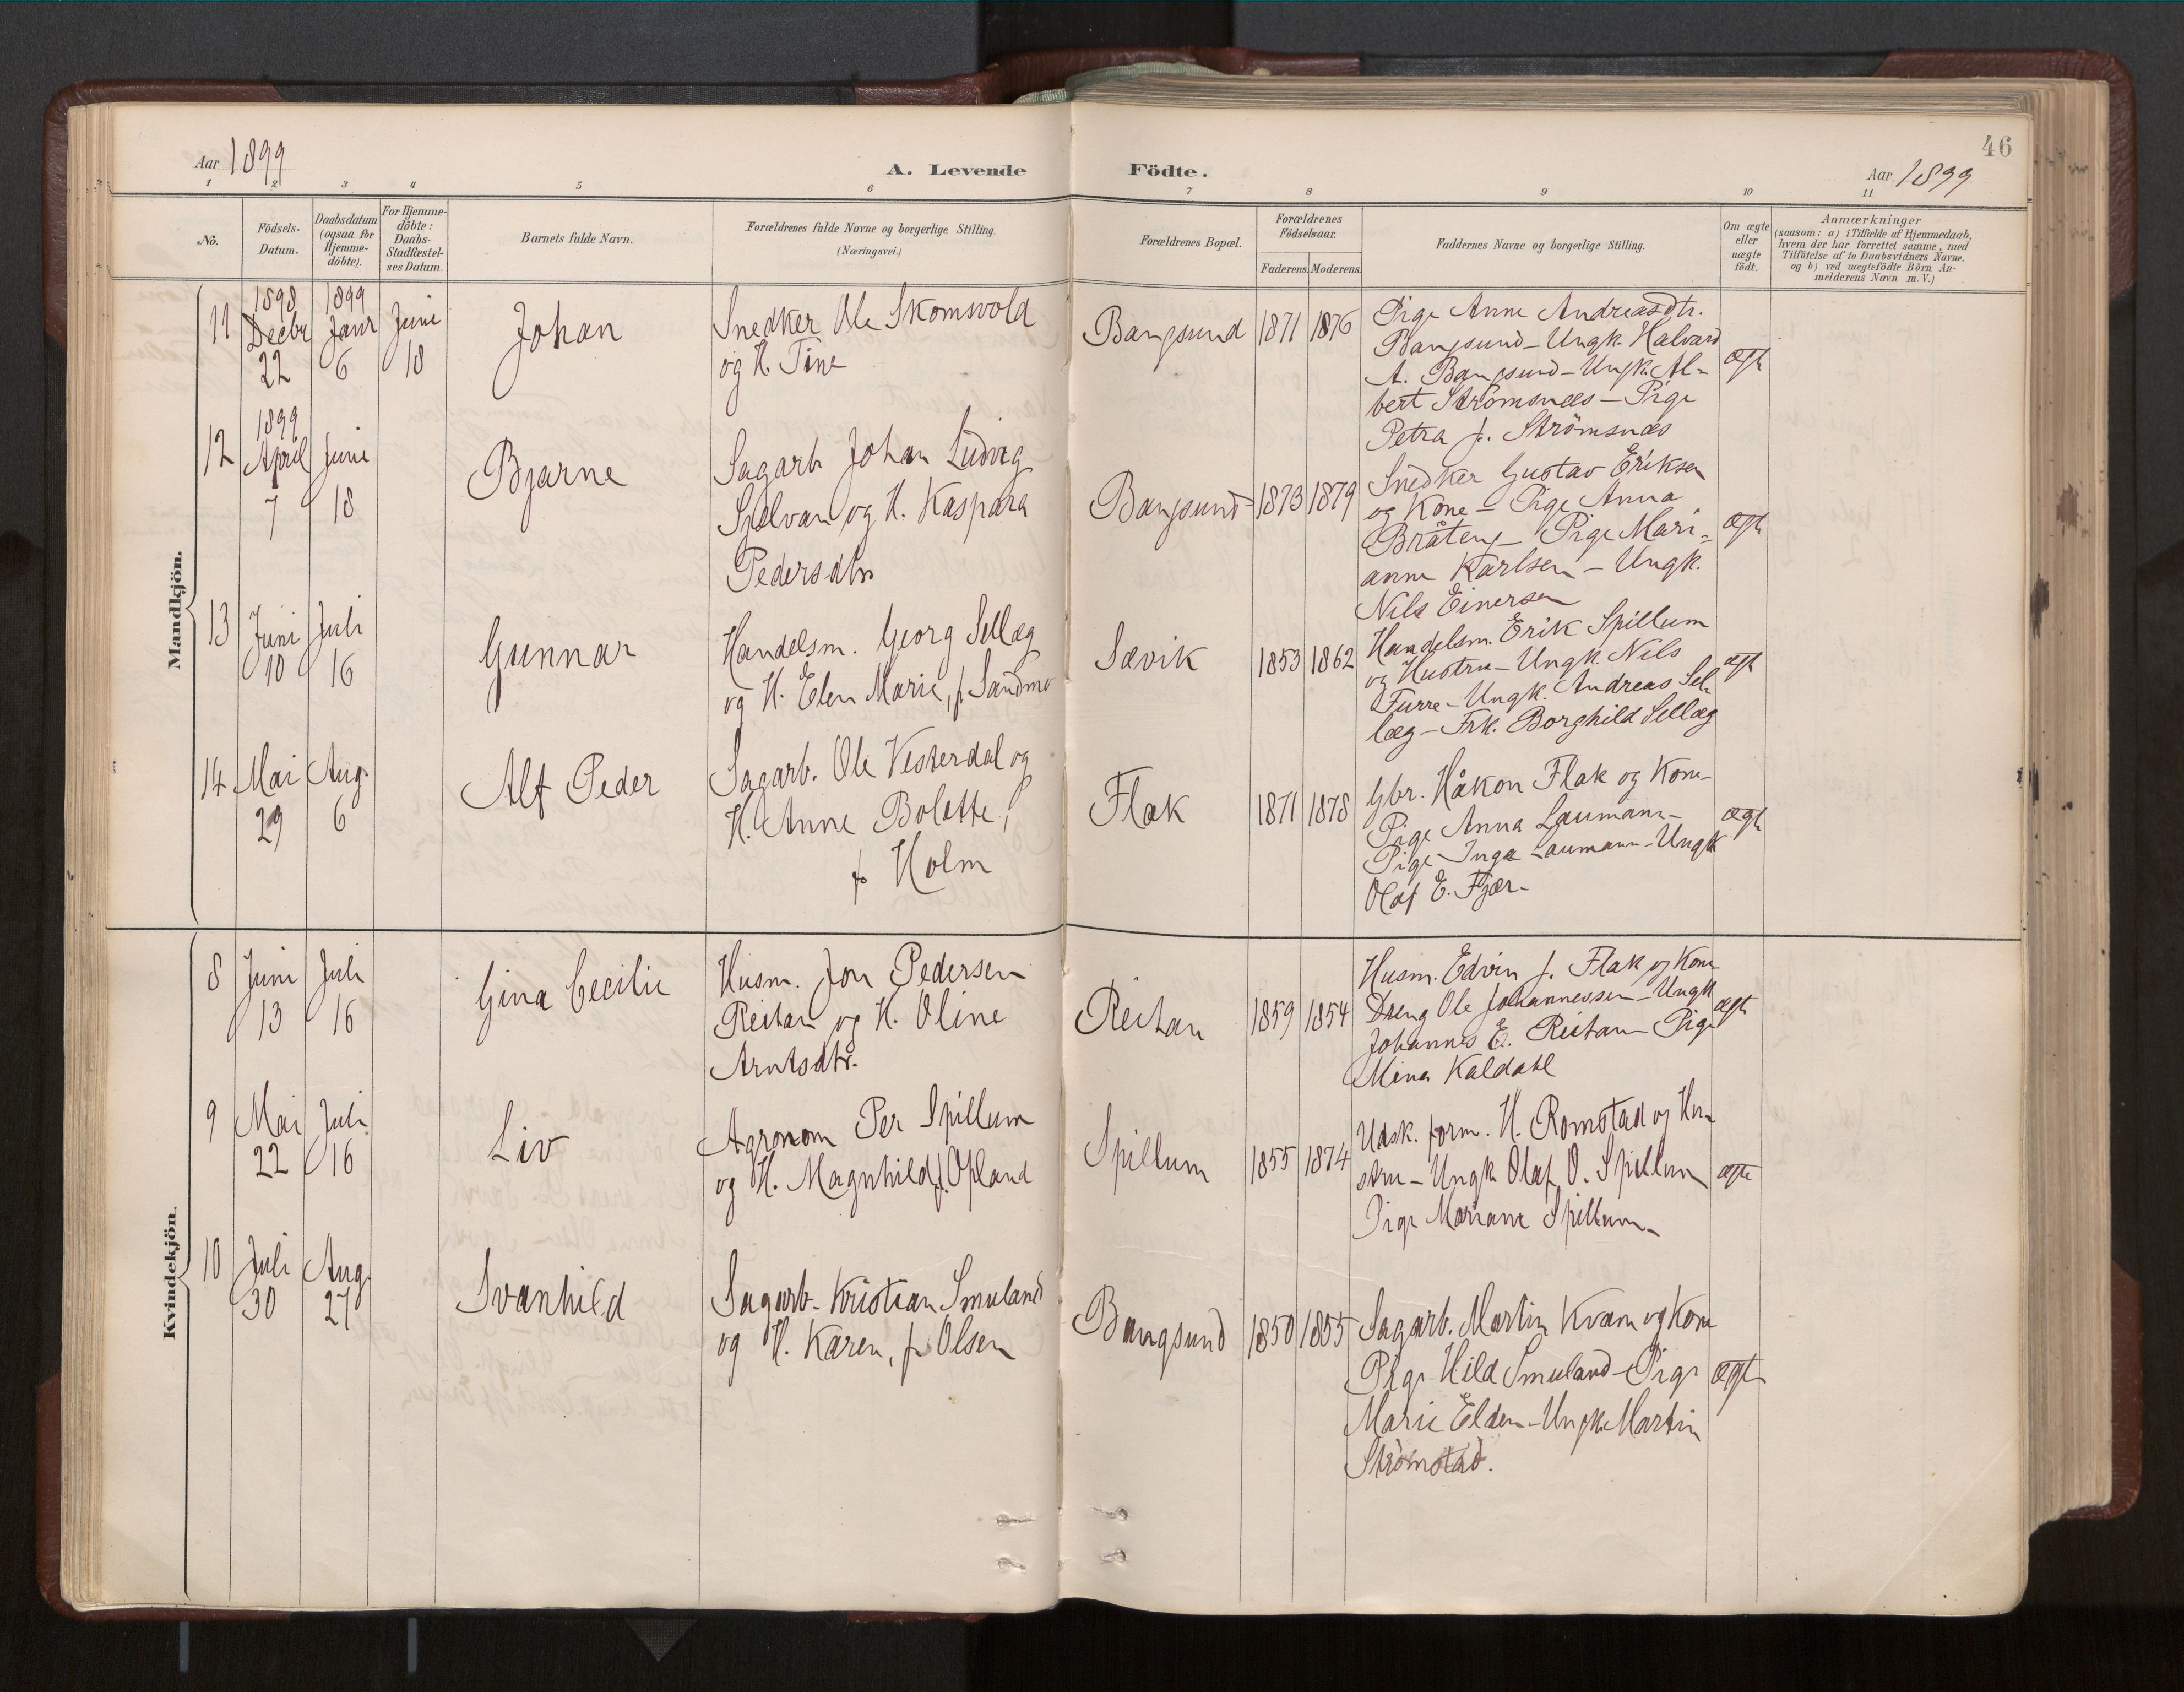 46
Aar 1899
A. Levende Födte.
Aar 1899
1 2 3 4 5 6 7 8 9 10 11
No.
Födsels-
Datum.
Daabsdatum
(ogsaa for
Hjemme-
döbte).
For Hjemme-
döbte:
Daabs-
Stadfæstel-
ses Datum.
Barnets fulde Navn.
Forældrenes fulde Navne og borgerlige Stilling.
(Næringsvei.)
Forældrenes Bopæl.
Forældrenes
Födselsaar.
Faderens. Moderens.
Faddernes Navne og borgerlige Stilling.
Om ægte
eller
uægte
födt.
Anmærkninger
(saasom: a) i Tilfælde af Hjemmedaab,
hvem der har forrettet samme, med
Tilföielse af to Daabsvidners Navne.
og b) ved uægtefödte Börn An-
melderens Navn m.V.)
Mandkjön.
11
1898
Decbr
22
1899
Janr
6
Juni
18
Johan
Snedker Ole Skomsvold
og H. Tine
Bangsund
1871
1876
Pige Anne Andreasdtr.
Bangsund - Ungk. Halvard
A. Bangsund - Ungk. Al-
bert Strömsnæs - Pige
Petra J. Strömsnæs
ægte
12
1899
April
7
Juni
18
Bjarne
Sagarb Johan Ludvig
Sjelvan og H. Kaspara
Pedersdtr
Bangsund
1873
1879
Snedker Gustav Eriksen
og Kone - Pige Anna
Bråteng - Pige Mari-
anne Karlsen - Ungk.
Nils Einersen
ægte
13
Juni
10
Juli
16
Gunnar
Handelsm. Georg Sellæg
og H. Elen Marie, f. Sandmo
Sævik
1853
1862
Handelsm. Erik Spillum
og Hustru - Ungk. Nils
Furre - Ungk. Andreas Sel-
læg - Frk. Borghild Sellæg
ægte
14
Mai
29
Aug.
6
Alf Peder
Sagarb. Ole Vesterdal og
H. Anne Bolette,
f. Holm
Flak
1871
1878
Gbr. Håkon Flak og Kone -
Pige Anna Laumann -
Pige Inga Laumann - Ungk
Olaf E. Fjær -
ægte
Kvindekjön.
8
Juni
13
Juli
16
Gina Cecilie
Husm. Jon Pedersen
Reitan og H. Oline
Arntsdtr.
Reitan
1859
1854
Husm. Edvin J. Flak og Kone
Dreng Ole Johannessen - Ungk
Johannes E. Reitan - Pige
Mina Kaldahl
ægte
9
Mai
22
Juli
16
Liv
Agronom Per Spillum
og H. Magnhild f. Opland
Spillum
1855
1874
Udsk. form. H. Romstad og Hu-
stru - Ungk Olaf O. Spillum
Pige Mariane Spillum -
ægte
10
Juli
30
Aug.
27
Svanhild
Sagarb. Kristian Smuland
og H. Karen, f. Olsen
Bangsund
1850
1855
Sagarb. Martin Kvam og Kone
Pige Hild Smuland - Pige
Marie Elden - Ungk. Martin
Strömstad.
ægte